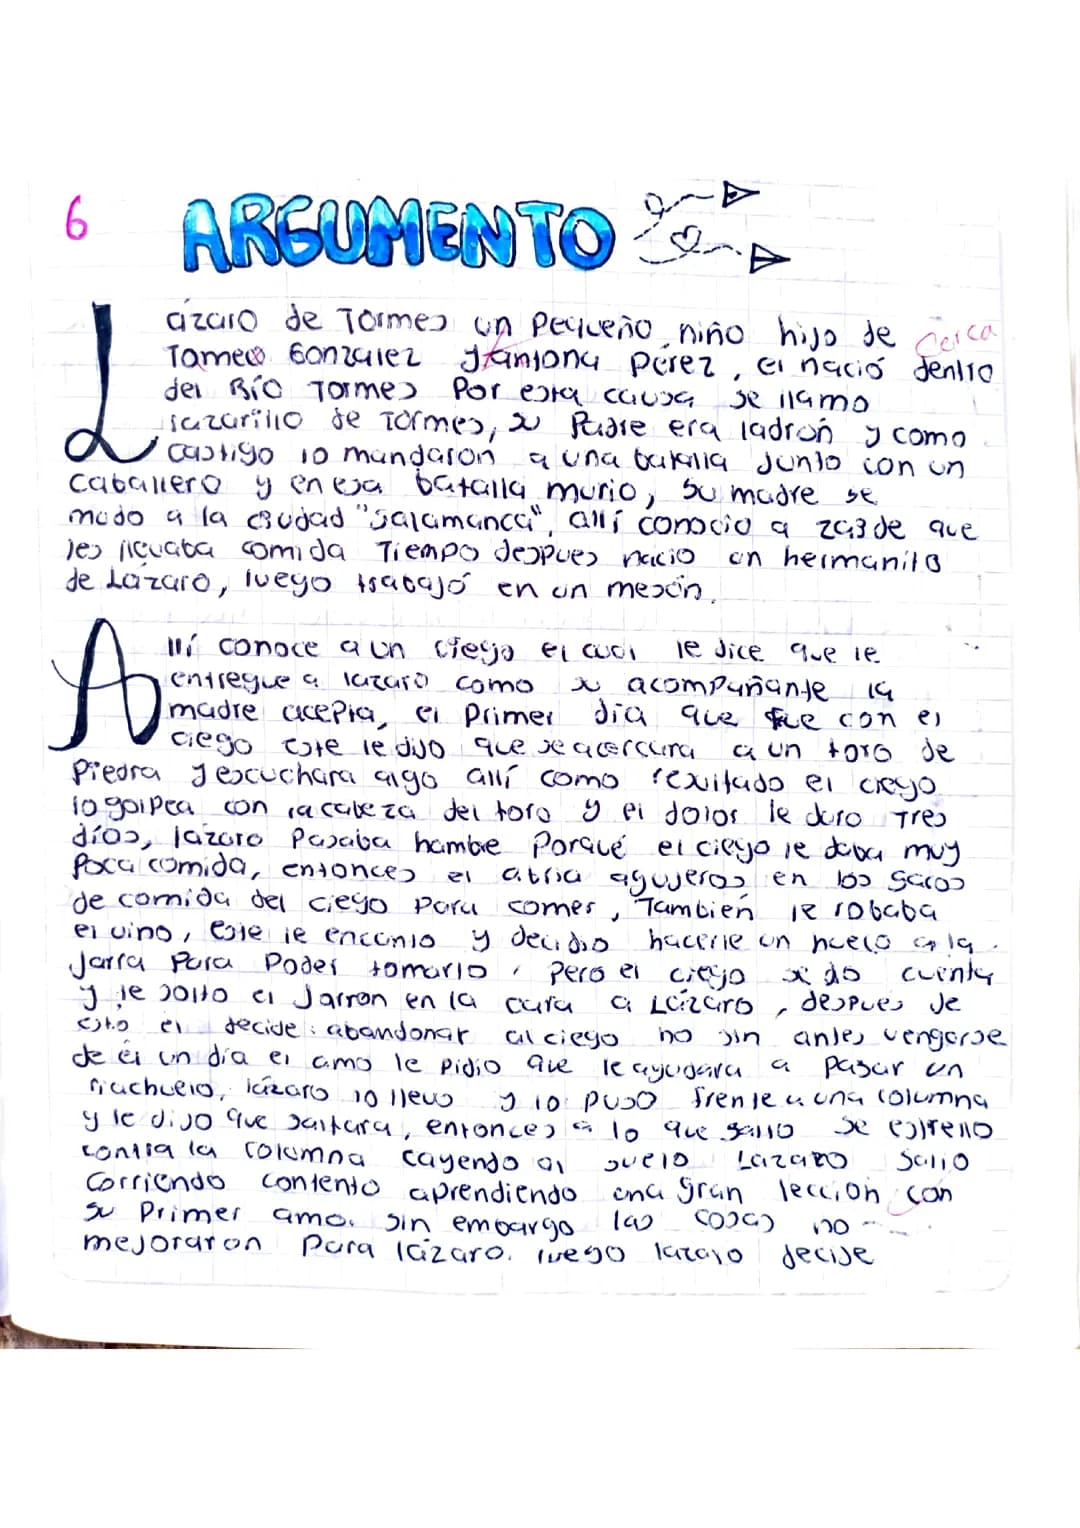 6 ARGUMENTO
Lázaro de Tormes un Pequeño niño hijo de cerca
Tomeo Gonzalez y Antona Perez, el nació dentro
del Río Tormes Por esta causa se llamo
lazarillo de Tormes, su Padre era ladrón y como
castigo lo mandaron a una batalla Junto con un
caballero y en esa batalla murio, su madre se
mudo a la ciudad "Salamanca", allí conocio a zaide que
les llevaba comida Tiempo despues nacio un hermanito
de Lázaro, luego trabajó en un mesón.
Allí conoce a un ciego el cual le dice que le
entregue a lazaro como su acompañante la
madre acepta, el Primer día que fue con el
ciego este le dijo que se acercara a un toro de
Piedra y escuchara algo allí como resultado el ciego
lo golpea con la cabeza del toro y el dolor le duro Tres
días, lázaro Pasaba hambre Porqué el ciego le daba muy
Poca comida, entonces el abria agujeros en los sacos
de comida del ciego Para comer, También le robaba
el vino, este le encanto y decidio hacerle un hueco a la
Jarra Para Poder tomarlo, Pero el ciego se dio cuenta
y le solto el Jarron en la cara a Lázaro, despues de
esto el decide abandonar al ciego no sin antes vengarse
de él un día el amo le pidio que le ayudara a pasar un
riachuelo, lázaro lo llevo y lo puso frente a una columna
y le dijo que saltara, entonces a lo que salto se estrello
contra la columna cayendo al suelo Lazaro Salio
Corriendo contento aprendiendo una gran lección con
su Primer amo. sin embargo las cosas no
mejoraron Para lázaro. luego lazaro decide